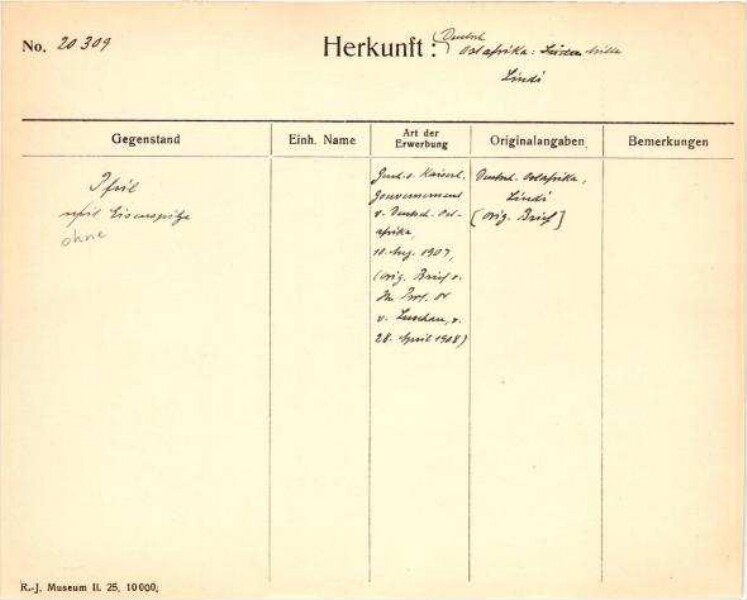 No. 20309
Herkunft: (Deutsch
Ostafrika:
Lindi
Gegenstand
Einh. Name
Art der
Erwerbung
Originalangaben
Bemerkungen
Pfeil
mit Eisenspitze
ohne
Kaiserl.
Gouvernement
v. Deutsch-Ost-
afrika,
10. Aug. 1907,
(orig. Brief v.
Prof. Dr
v. Luschan, v.
28. April 1908)
Deutsch-Ostafrika,
Lindi
[orig. Brief]
R.-J. Museum II. 25, 10000;